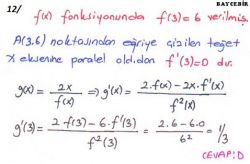 BAYCEBİR
12/ f(x) fonksiyonunda f(3)=6 verilmiş.
A(3,6) noktasından eğriye çizilen teğet
x eksenine paralel old.dan f'(3)=0 dır.
g(x) = 2x / f(x) ⇒ g'(x) = 2.f(x) - 2x.f'(x) / f²(x)
g'(3) = 2.f(3) - 6.f'(3) / f²(3) = 2.6 - 6.0 / 6² = 1/3
CEVAP:D